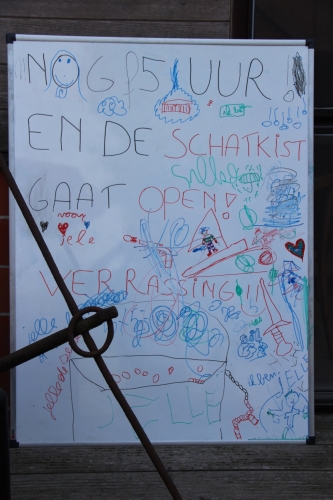 NOG 5 UUR
EN DE SCHATKIST
GAAT OPEN!
voor
jele
VERRASSING!!
jelle
JELLE